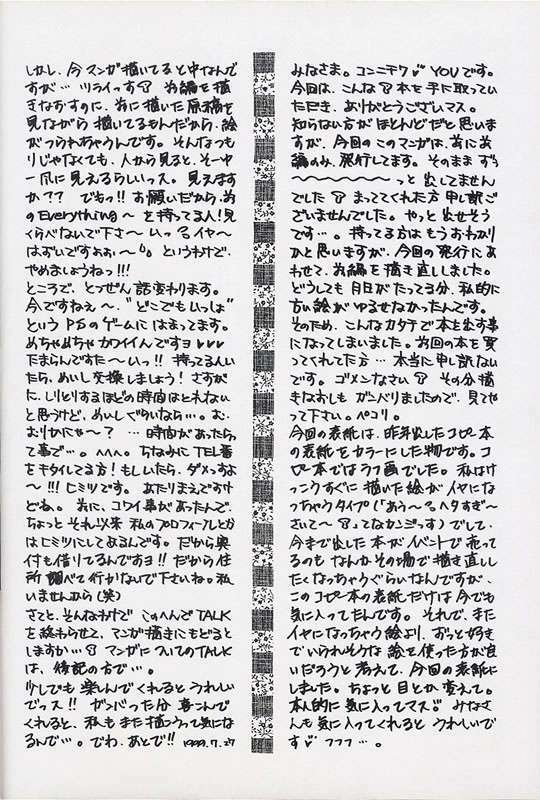 みなさま。コンニチワ♡ YOUです。
今回は、こんな本を手に取っていた
だき、ありがとうございマス。
知らない方がほとんどだと思いま
すが、今回のこのマンガは、前に前
編のみ、発行してます。そのまま ずぅ
〜〜〜〜〜〜〜っと 出してません
でした まっててくれた方 申し訳ご
ざいませんでした。やっと出せそう
です…。持ってる方は もうおわかり
かと思いますが、今回の発行にあ
わせて、前編を描き直ししました。
どうしても 月日がたってる分、私的に
古い絵が ゆるせなかったんです。
そのため、こんなカタチで本を出す事
になってしまいました。前回の本を買
ってくれてた方… 本当に申し訳ない
です。ゴメンなさい その分描
きなおしも ガンバりましたので、見てや
って下さい。ペコリ。
今回の表紙は、昨年出したコピー本
の表紙をカラーにした物です。コ
ピー本ではラフ画でした。私はけ
っこうすぐに描いた絵がイヤにな
っちゃうタイプ(「あぅ〜 ヘタすぎ〜
さいて〜 」ってなカンジっす)でして、
今まで出した本がイベントで売って
るのも なんか その場で描き直しし
たくなっちゃうぐらいなんですが、
このコピー本の表紙だけは今でも
気に入ってたんです。それで、また
イヤになっちゃう絵より、ずっと好き
でいられそうな 絵を使った方が良
いだろうと考えて、今回の表紙に
しました。ちょっと目とか変えて。
本人的に気に入ってマス♡ みなさ
んも気に入ってくれると うれしいで
す♡ フフフ…。
しかし、今マンガ描いてるまっ中なんで
すが… ツライっす 前編を描
きなおすのに、前に描いた原稿を
見ながら 描いてるもんだから、絵
がつられちゃうんです。そんなつも
りじゃなくても、人から見ると、その中
一爪に見えるらしいっス。見えます
か?? でもっ!! お願いだから、前
のEverything〜を持ってる人!見
くらべないで下さ〜いっ イヤ〜
はずいですよぉぉ〜 というわけで、
やめましょうねっ!!!
ところで、とつぜん話変わります。
今ですねぇ〜、"どこでもいっしょ"
という PSのゲームに はまってます。
めちゃめちゃカワイイんですヨ♡♡♡
たまらんですた〜いっ!! 持ってる人い
たら、めいし交換しましょう! さすが
に、しりとりするほどの時間はとれない
と思うけど、めいしぐらいなら…。お・
おりかにゃ〜? …時間があったらっ
て事で…。^^^。ちなみにTEL番
をキタイしてる方! もしいたら、ダメっすよ
〜!!! ヒミツです。あたりまえですけ
どね。前に、コワイ事があったんで、
ちょっと それ以来 私のプロフィールとか
はヒミツにしてあるんです。だから奥
付も借りてるんですヨ!! だから住
所調べて行かないで下さいねっ私
いませんから(笑)
さてと、そんなわけで このへんでTALK
を終わらせて、マンガ描きにもどると
しますか… マンガについてのTALK
は、後記の方で…。
少しでも楽しんでくれると うれしい
でっス!! ガンバった分 喜こんで
くれると、私もまた描こうって気にな
るんで…。でわ、あとで!! 1999.7.27